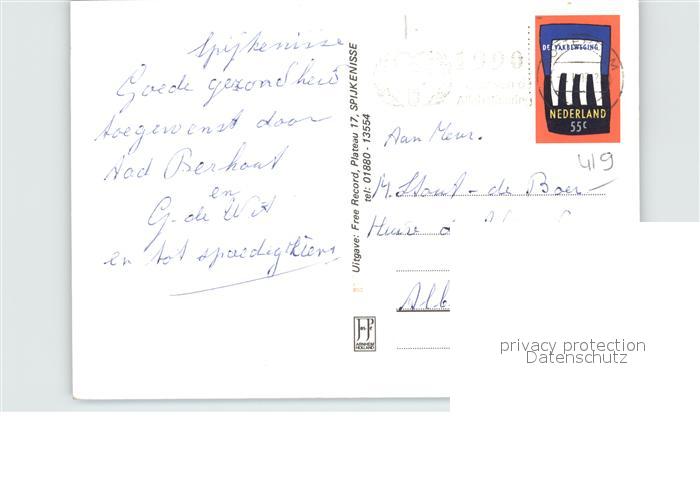 Spijkenisse
Goede gezondheid
toegewenst door
Aad Berkout
en
G. de Wit
en tot spoedig ziens
Uitgave: Free Record, Plateau 17, SPIJKENISSE
tel: 01880 - 13554
JosPé
ARNHEM
HOLLAND
1990
DE VAKBEWEGING
NEDERLAND
55c
419
Aan Mevr.
M. Stout - de Boer
Huize
Alb
privacy protection
Datenschutz